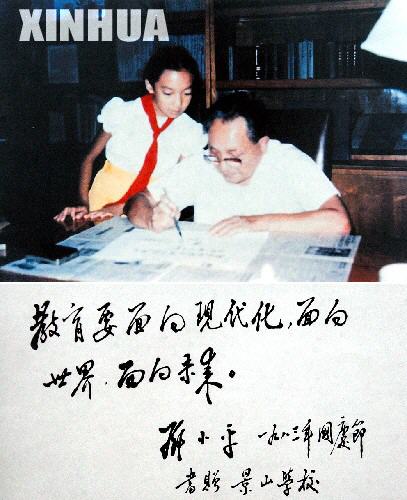 XINHUA
教育要面向现代化，面向
世界，面向未来。
邓小平 一九八三年國慶節
書贈 景山學校